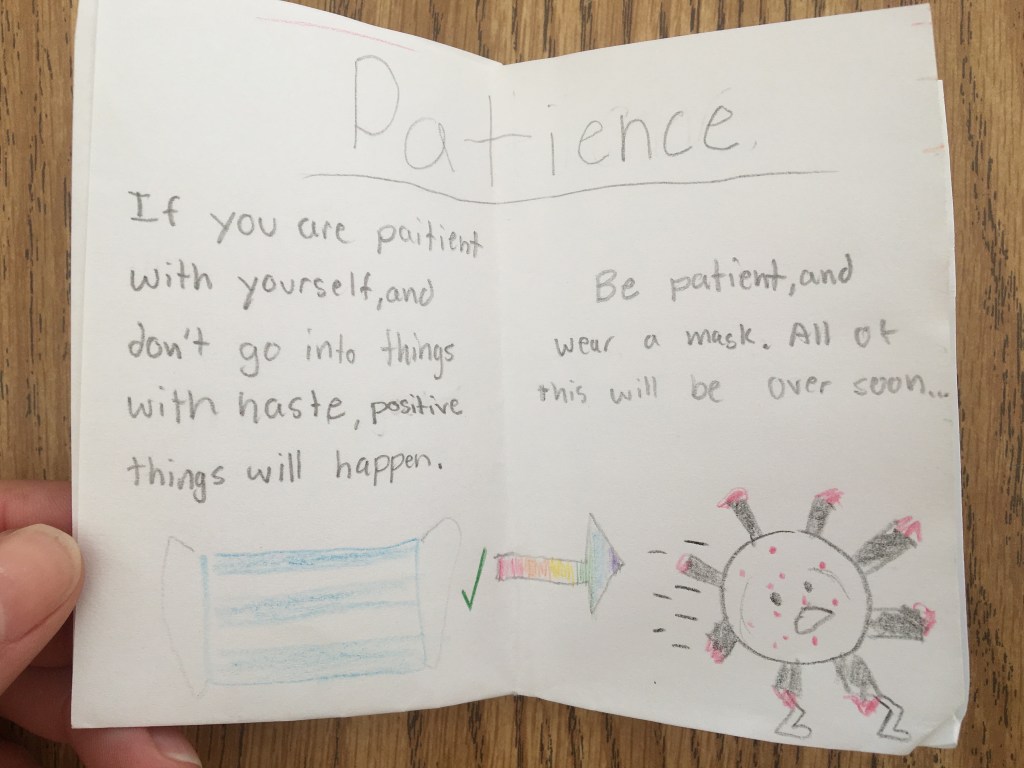 Patience
If you are paitient
with yourself, and
don't go into things
with haste, positive
things will happen.
Be patient, and
wear a mask. All of
this will be over soon...